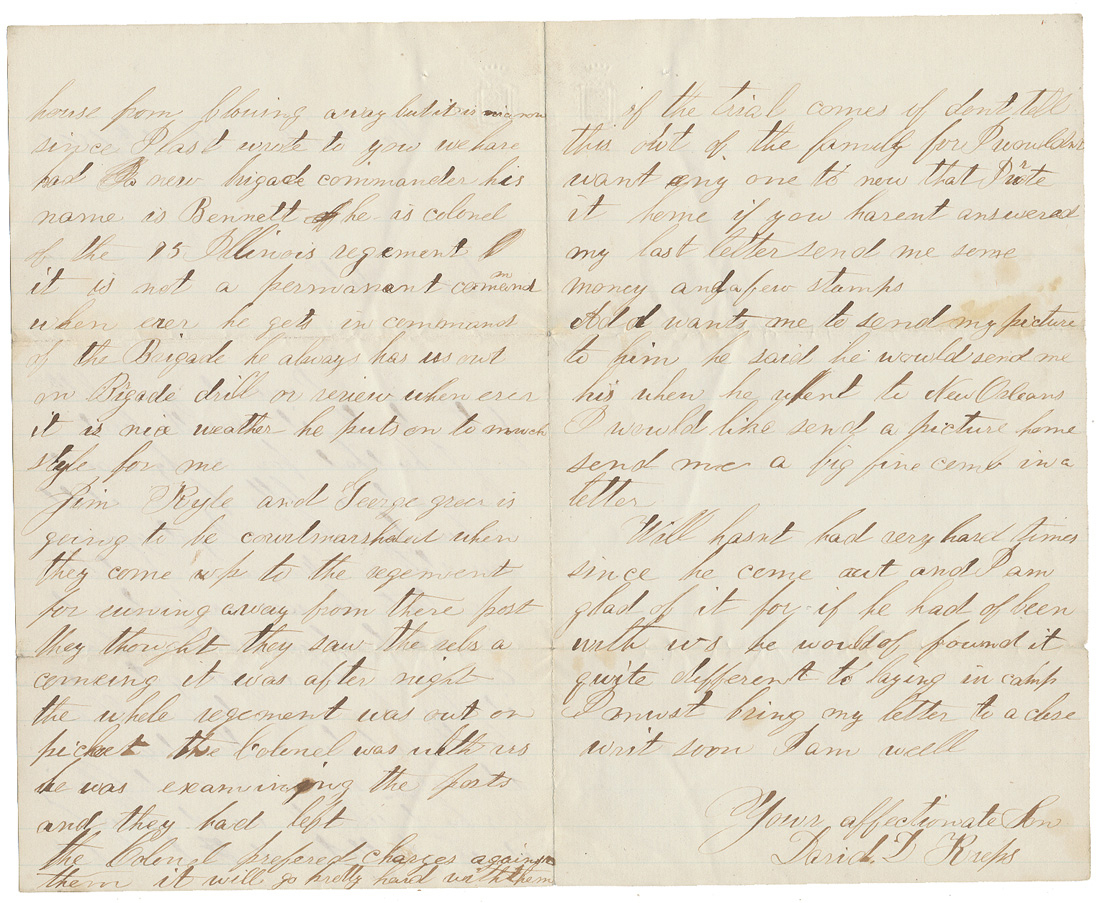 house from blowing away but it is
since I last wrote to you we have
had a new brigade commander his
name is Bennett he is colonel
of the 95 Illinois regement
it is not a permanant command
when ever he gets in command
of the Brigade he always has us out
on Bigade drill or review when ever
it is nice weather he puts on to much
style for me
Jim Kyle and George greer is
going to be courtmarshaled when
they come up to the regement
for runing away from there post
they thought they saw the rebs a
comeing it was after night
the whole regement was out on
picket the Colonel was with us
he was examining the posts
and they had left
the Colonel prefered charges against
them it will go pretty hard with them
if the trial comes if dont tell
this out of the family for I wouldnt
want eny one to new that I wrte
it home if you havent answered
my last letter send me some
money and a few stamps
Add wants me to send my picture
to him he said he would send me
his when he went to New Orleans
I would like send a picture home
send me a big fine comb in a
letter
Will hasnt had very hard times
since he come out and I am
glad of it for if he had of been
with us he would of found it
quite different to laying in camp
I must bring my letter to a close
writ soon I am well
Your affectionate Son
David D Kreps